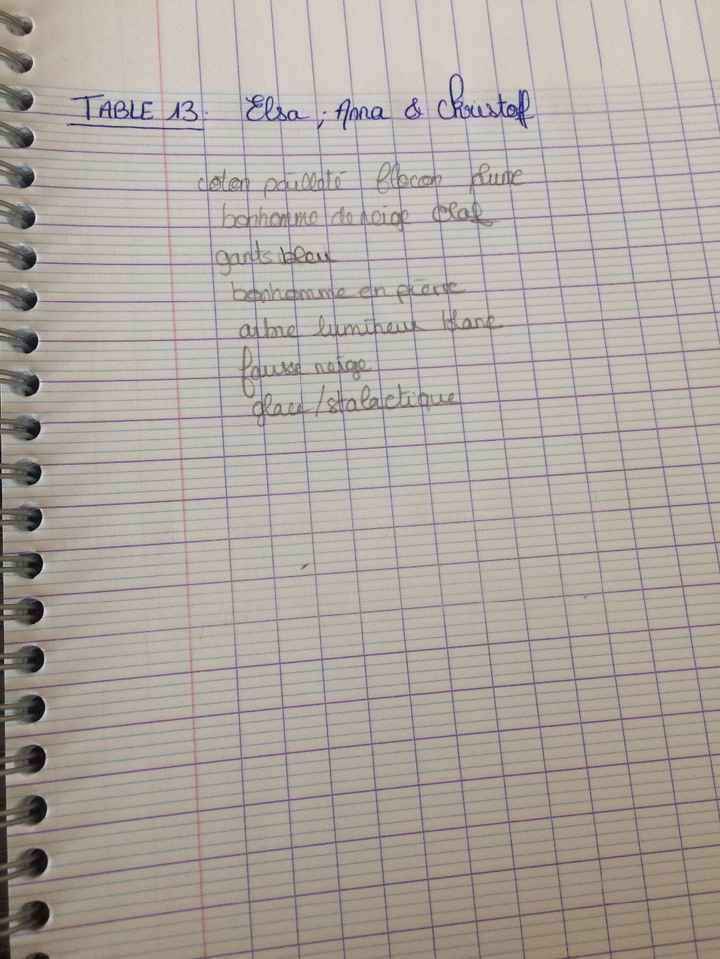 TABLE 13. Elsa, Anna & Choustof
coton pailleté flocon plume
bonhomme de neige Olaf
gants bleu
bonhomme en pierre
arbre lumineux blanc
fausse neige
glace/stalactique